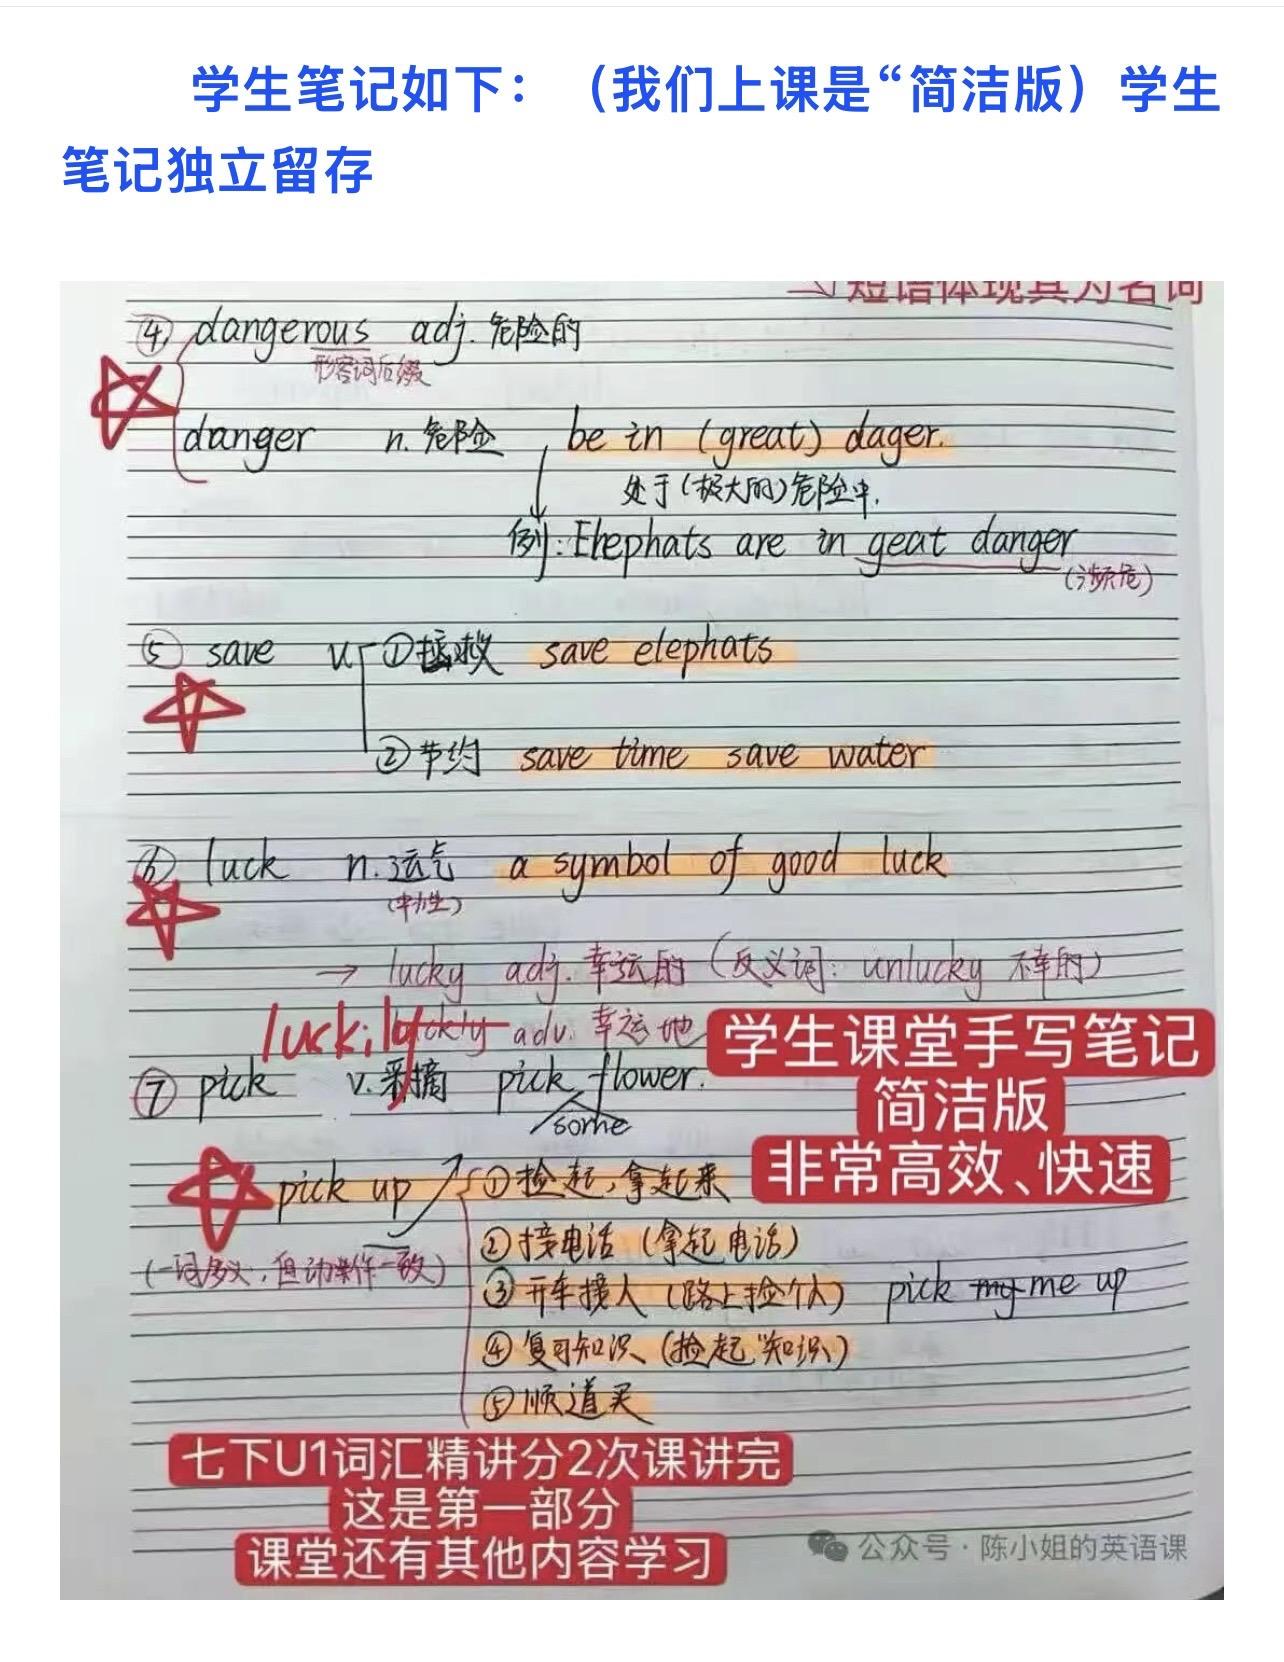 学生笔记如下：（我们上课是“简洁版）学生
笔记独立留存
短语体现其为名词
④ dangerous adj. 危险的
形容词后缀
danger n. 危险 be in (great) dager.
处于(极大的)危险中.
例: Elephats are in geat danger
(濒危)
⑤ save v. ①拯救 save elephats
②节约 save time save water
⑥ luck n. 运气 a symbol of good luck
(中性)
→ lucky adj. 幸运的 (反义词: unlucky 不幸的)
luckily luckly adv. 幸运地
⑦ pick v. 采摘 pick flower.
some
学生课堂手写笔记
简洁版
非常高效、快速
pick up ①捡起,拿起来
②接电话 (拿起电话)
(一词多义,但动作一致)
③开车接人 (路上捡个人) pick my me up
④复习知识 (捡起"知识)
⑤顺道买
七下U1词汇精讲分2次课讲完
这是第一部分
课堂还有其他内容学习
公众号·陈小姐的英语课